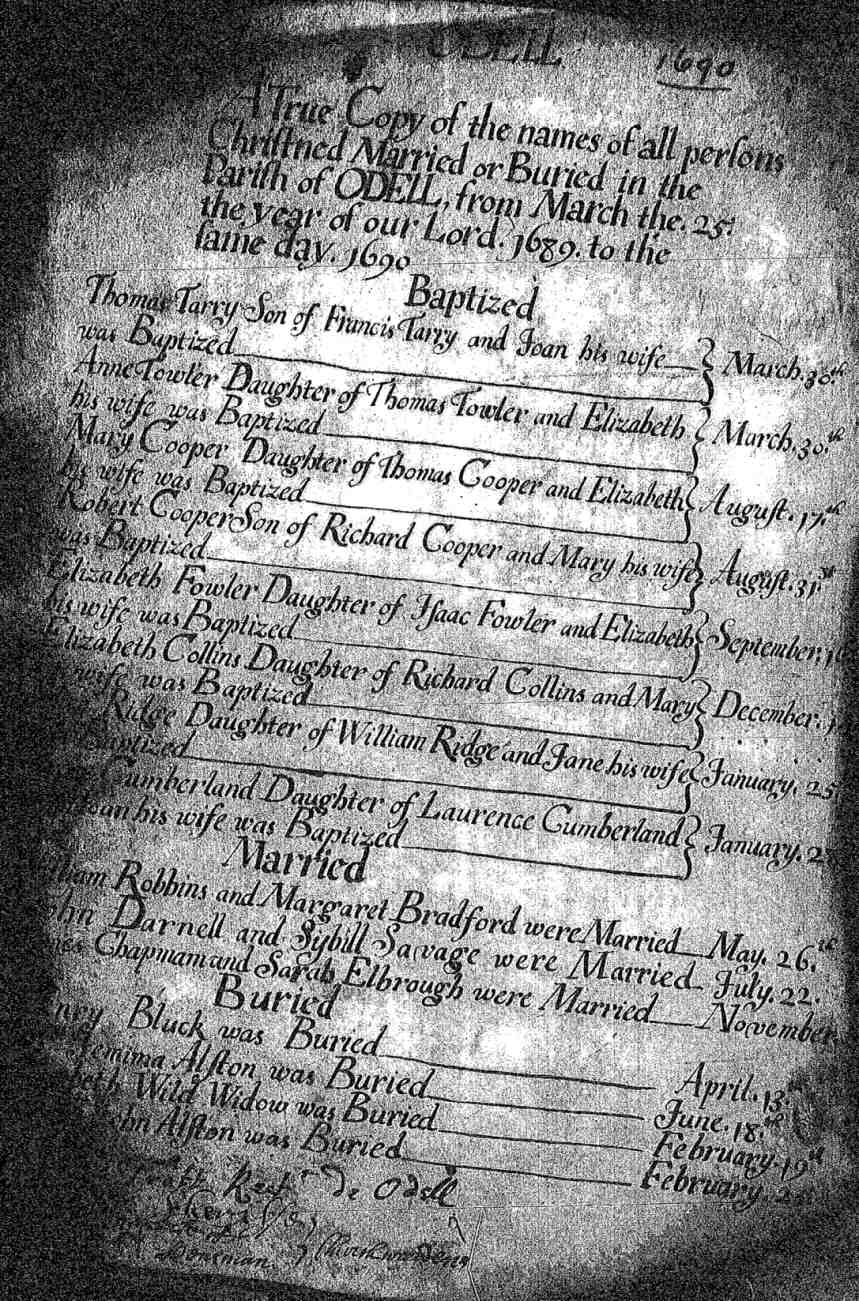 ODELL
1690
A True Copy of the names of all perſons
Chriſtned Married or Buried in the
Pariſh of ODELL, from March the. 25.
the year of our Lord. 1689. to the
ſame day. 1690
Baptized
Thomas Tarry Son of Francis Tarry and Joan his wife March. 30.th
was Baptized
Anne Towler Daughter of Thomas Towler and Elizabeth March. 30.th
his wife was Baptized
Mary Cooper Daughter of Thomas Cooper and Elizabeth August. 17.th
his wife was Baptized
Robert Cooper Son of Richard Cooper and Mary his wife August. 31.st
was Baptized
Elizabeth Fowler Daughter of Iſaac Fowler and Elizabeth September.
his wife was Baptized
Elizabeth Collins Daughter of Richard Collins and Mary December.
wife was Baptized
Ridge Daughter of William Ridge and Jane his wife January. 25
Baptized
Cumberland Daughter of Laurence Cumberland January.
his wife was Baptized
Married
Robbins and Margaret Bradford were Married May. 26.th
Darnell and Sybill Savage were Married July. 22.
Chapmam and Sarah Elbrough were Married November
Buried
Bluck was Buried April. 13.
Jemima Alſton was Buried June. 18.th
Wild Widow was Buried February. 19th
Alſton was Buried February.
Rect.r de Odell